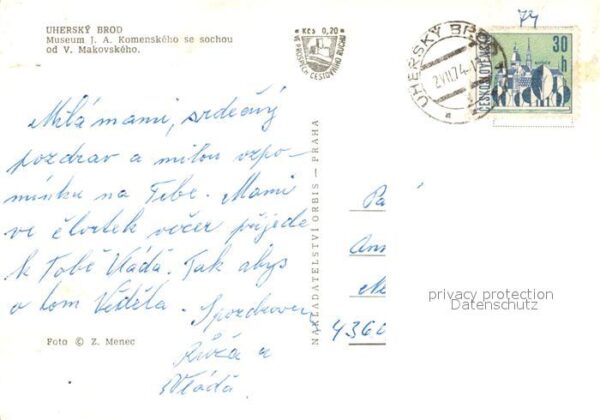 UHERSKÝ BROD
Museum J. A. Komenského se sochou
od V. Makovského.
Kčs 0,20
VE PROSPĚCH CESTOVNÍHO RUCHU
74
UHERSKÝ BROD
2.VII.74-1
30
h
ČESKOSLOVENSKO
Milá mami, srdečný
pozdrav a milou vzpo-
mínku na Tebe. Mami
ve čtvrtek večer přijede
k Tobě Vláďa. Tak abys
o tom věděla.
S pozdravem
Růža a
Vláďa.
NAKLADATELSTVÍ ORBIS — PRAHA
4360
privacy protection
Datenschutz
Foto © Z. Menec